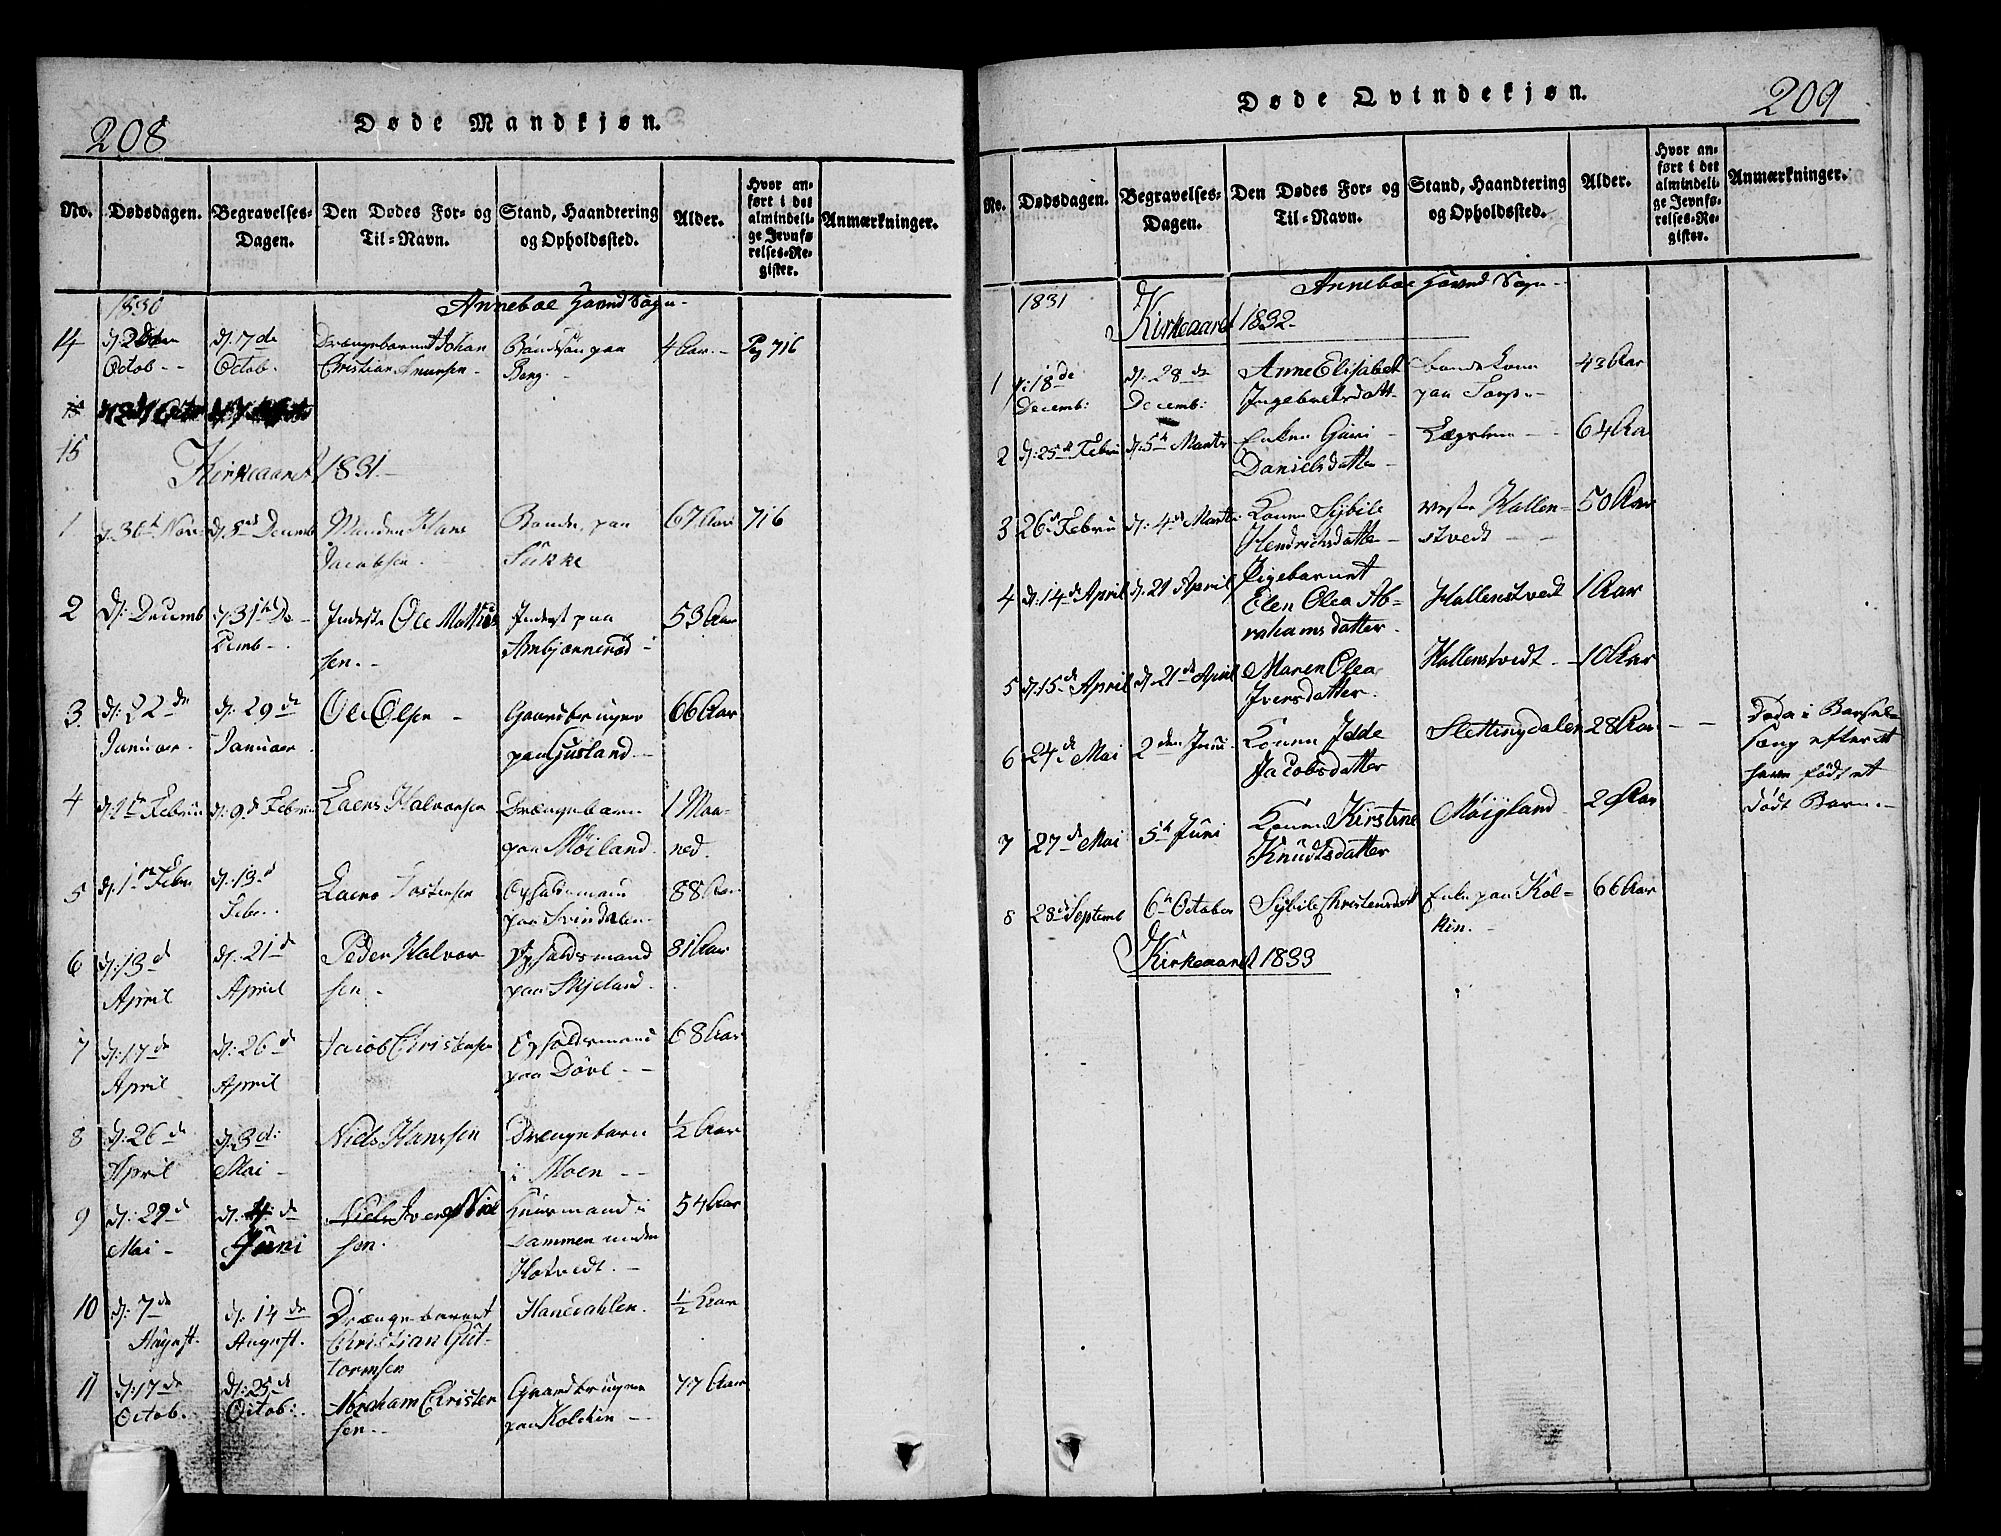 208
Døde Mandkjøn.
No.
Dødsdagen.
Begravelses-
Dagen.
Den Dødes For- og
Til-Navn.
Stand, Haandtering
og Opholdssted.
Alder.
Hvor an-
ført i det
almindeli-
ge Jevnfø
relses-Re-
gister.
Anmærkninger.
1830
Anneboe Sogn
14
October
Octob.
d: 7de
Octob.
Drængebarnet Johan
Christian
paa
Berg.
4 Aar.
Pag 716
15
Kirkeaaret 1831
1
d. 30te Nov
d. 5te Decemb
Manden Hans
Jacobsen.
Bonde paa
Sükke
67 Aar
716
2
d: Decemb
d. 31te De-
cemb.
Inderste Ole Mathies
sen.
Inderst paa
Ambjørnerød
53 Aar
3.
d: 22de
Januar.
d: 29de
Januar.
Ole Olsen
Gaardbruger
paa Gusland
66 Aar
4
d: 1ste Febru
d: 9de Febru
Laers Halvorsen
Drængebarn
paa Möiland.
1 Maa-
ned.
5
d. 1ste Febr.
d: 13d
Febr.
Laers Tostensen
Opholdsmand
paa Svindalen.
88 Aar
6
d: 13d
April
d: 21de
April
Peder Halvor
sen
Opholdsmand
paa Skjeland.
81 Aar
7
d: 17de
April
d: 26de
April
Jacob Christensen
Opholdsmand
paa Dövle
68 Aar
8
d: 26de
April
d: 3d:
Mai
Niels Hanssen
Drængebarn
i Moen
1/2 Aar
9
d: 29d
Mai
d: 4de
Juni
Niels Iver Niel
sen.
Huusmand i
Dammen under
Hotvedt.
54 Aar
10
d: 7de
August.
d: 14de
August.
Drængebarnet
Christian Gut-
tormsen
Hanedahlen.
1/2 Aar
11
d: 17de
Octob.
d: 25de
Octob:
Abraham Christen
sen.
Gaardbruger
paa Kolckin
77 Aar
Døde Qvindekjøn.
209
No.
Dødsdagen.
Begravelses-
Dagen.
Den Dødes For- og
Til-Navn.
Stand, Haandtering
og Opholdssted.
Alder.
Hvor an-
ført i det
almindeli-
ge Jevnfø-
relses-Re-
gister.
Anmærkninger.
1831
Anneboe Sogn
Kirkeaaret 1832
1
d: 18de
Decemb:
d: 28de
Decemb:
Anne Elisabet
Ingebretsdatt
Bondekone
paa Torp
43 Aar
2
d: 25de Febru
d: 5te Marts
Enken Guri
Danielsdatter
Lægslem
64 Aar
3
26de Febru
d: 4de Marts
Konen Sybile
Hendrichsdatter
vestre Hallen-
stvedt
50 Aar
4
d: 14de April
d. 21 April
Pigebarnet
Elen Olea Ab-
rahamsdatter.
Hallenstvedt
1 Aar
5
d: 15de April
d. 21de April
Maren Olea
Iversdatter.
Hallenstvedt
10 Aar
6
24de Mai
2den Juni
Konen Idde
Jacobsdatter
Slettingdalen
28 Aar
Døde i Barsel-
sæng efter at
have födt et
dödt Barn.
7
27de Mai
5te Juni
Konen Kirstine
Knudtsdatter
Möigland
8
28de Septemb
6te October
Sybile Christensdatt
Enke paa Kol-
kin.
66 Aar
Kirkeaaret 1833